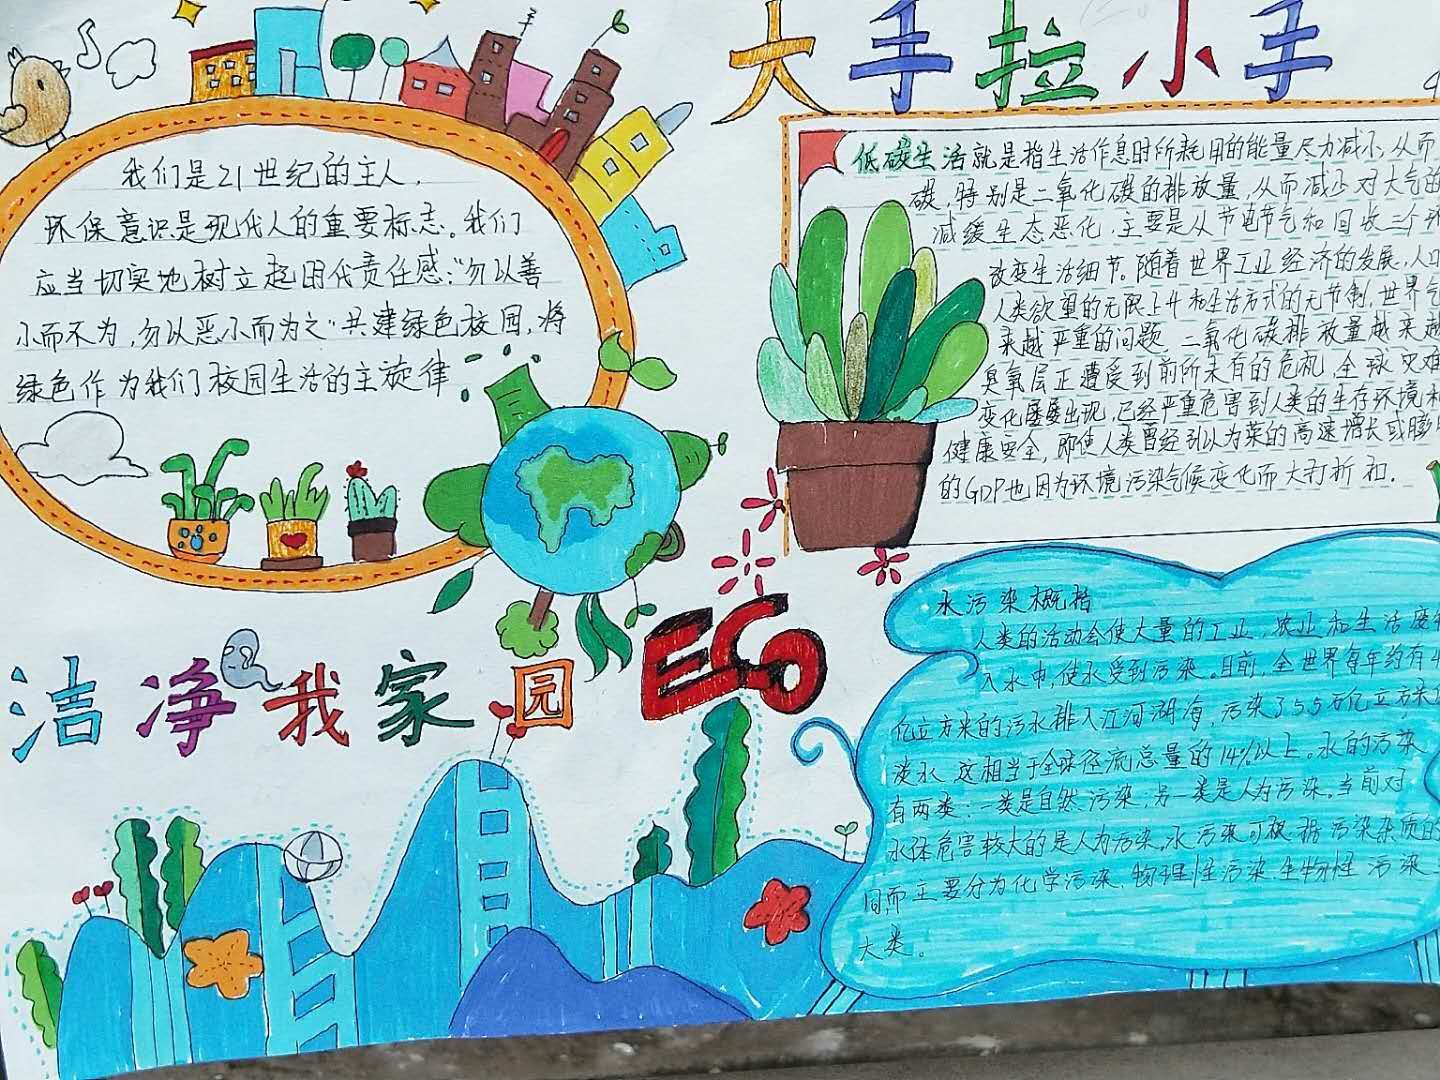 大手拉小手
我们是21世纪的主人，
环保意识是现代人的重要标志。我们
应当切实地树立起时代责任感："勿以善
小而不为，勿以恶小而为之"共建绿色校园，将
绿色作为我们校园生活的主旋律
低碳生活就是指生活作息时所耗用的能量尽力减小，从而
碳，特别是二氧化碳的排放量，从而减少对大气的
减缓生态恶化，主要是从节电节气和回收三个环
改变生活细节。随着世界工业经济的发展，人口
人类欲望的无限上升和生活方式的无节制，世界气
来越严重的问题，二氧化碳排放量越来越
臭氧层正遭受到前所未有的危机，全球灾难
变化屡屡出现，已经严重危害到人类的生存环境和
健康安全，即使人类曾经引以为荣的高速增长或膨
的GDP也因为环境污染气候变化而大打折扣.
洁净我家园
ECO
水污染概括
人类的活动会使大量的工业，农业和生活废
入水中，使水受到污染。目前，全世界每年约有4
亿立方米的污水排入江河湖海，污染了5.5万亿立方米
淡水，这相当于全球径流总量的14%以上。水的污染
有两类：一类是自然污染，另一类是人为污染。当前对
水体危害较大的是人为污染。水污染可根据污染杂质的
同而主要分为化学污染、物理性污染、生物性污染
大类。